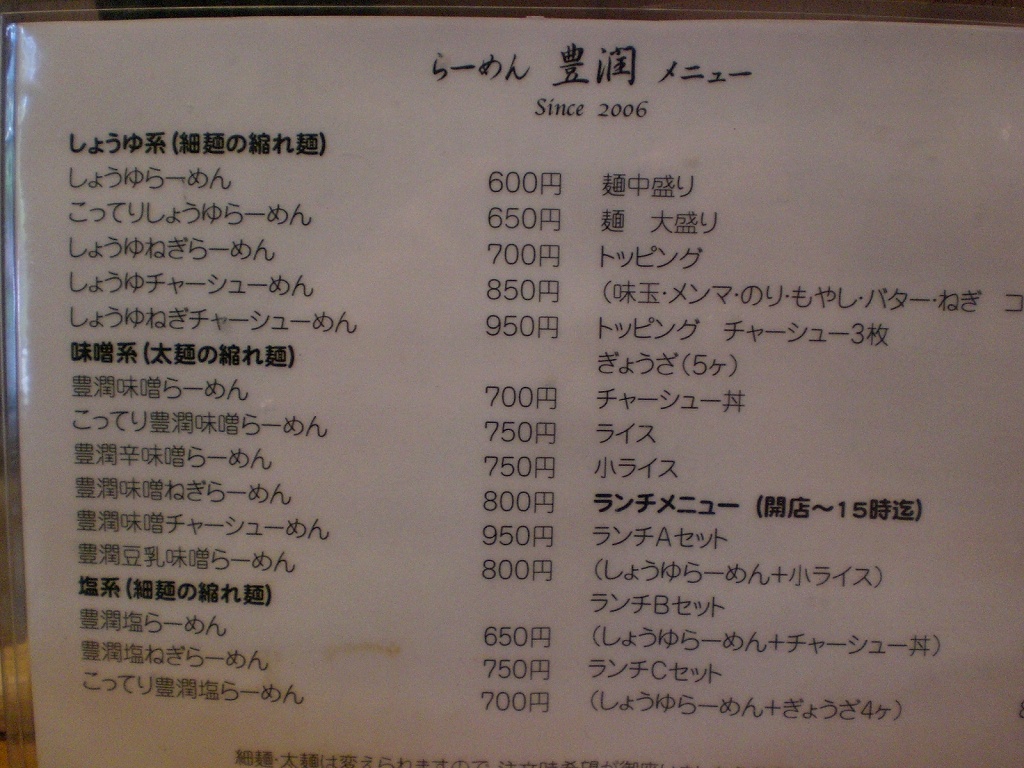 らーめん 豊潤 メニュー
Since 2006
しょうゆ系(細麺の縮れ麺)
しょうゆらーめん 600円
こってりしょうゆらーめん 650円
しょうゆねぎらーめん 700円
しょうゆチャーシューめん 850円
しょうゆねぎチャーシューめん 950円
味噌系(太麺の縮れ麺)
豊潤味噌らーめん 700円
こってり豊潤味噌らーめん 750円
豊潤辛味噌らーめん 750円
豊潤味噌ねぎらーめん 800円
豊潤味噌チャーシューめん 950円
豊潤豆乳味噌らーめん 800円
塩系(細麺の縮れ麺)
豊潤塩らーめん 650円
豊潤塩ねぎらーめん 750円
こってり豊潤塩らーめん 700円
麺中盛り
麺 大盛り
トッピング
(味玉・メンマ・のり・もやし・バター・ねぎ コ
トッピング チャーシュー3枚
ぎょうざ(5ヶ)
チャーシュー丼
ライス
小ライス
ランチメニュー (開店〜15時迄)
ランチAセット
(しょうゆらーめん+小ライス)
ランチBセット
(しょうゆらーめん+チャーシュー丼)
ランチCセット
(しょうゆらーめん+ぎょうざ4ヶ)
細麺・太麺は変えられますので、注文時希望が御座い